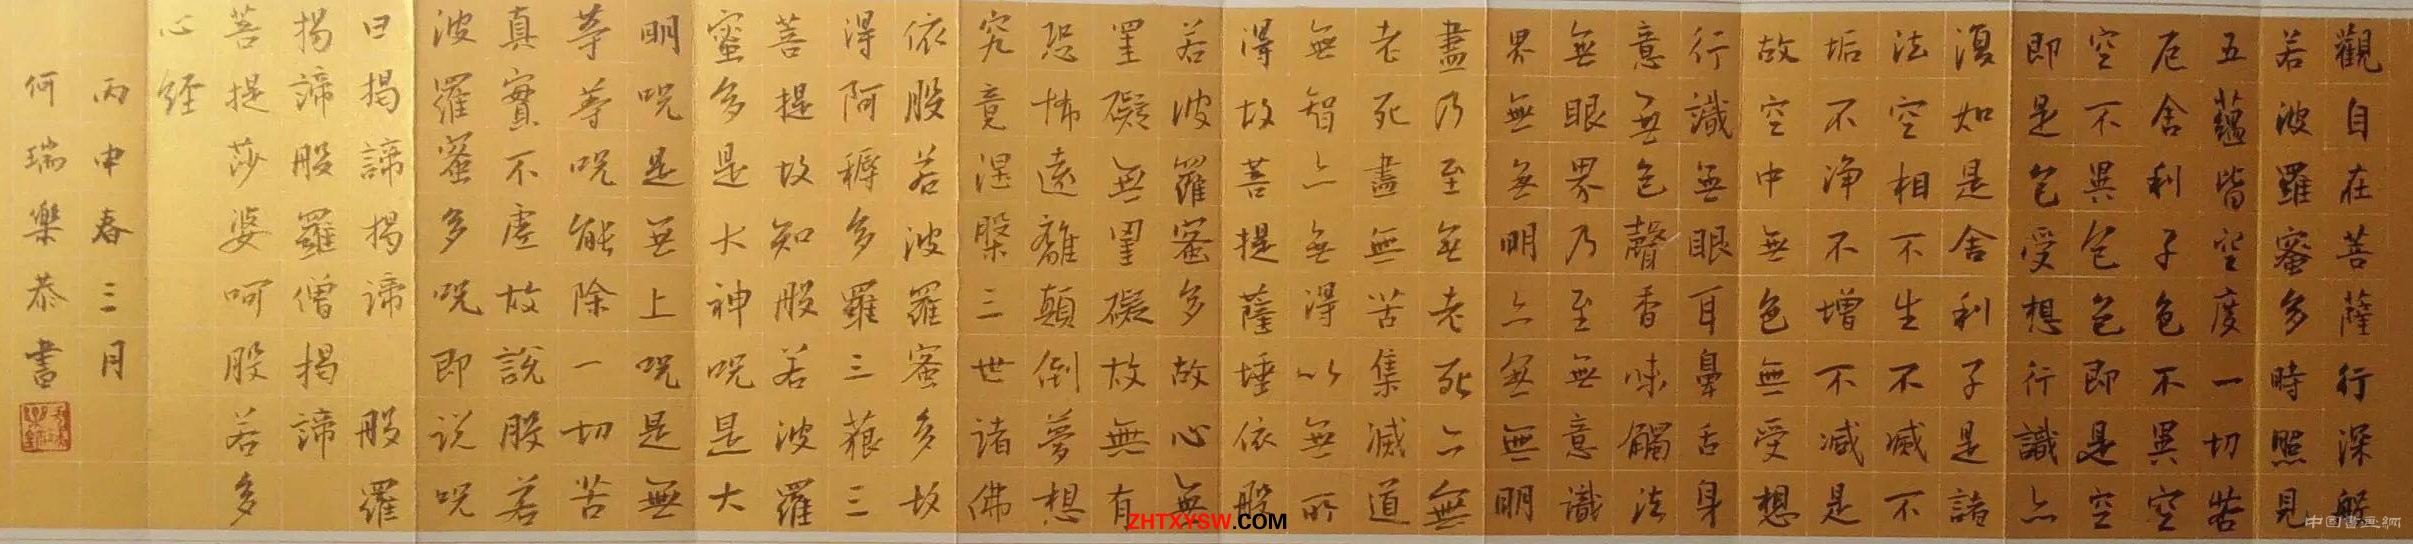 觀自在菩薩行深般
若波羅蜜多時照見
五蘊皆空度一切苦
厄舍利子色不異空
空不異色色即是空
即是色受想行識亦
復如是舍利子是諸
法空相不生不滅不
垢不净不增不減是
故空中無色無受想
行識無眼耳鼻舌身
意無色聲香味觸法
無眼界乃至無意識
界無無明亦無無明
盡乃至無老死亦無
老死盡無苦集滅道
無智亦無得以無所
得故菩提薩埵依般
若波羅蜜多故心無
罣礙無罣礙故無有
恐怖遠離顛倒夢想
究竟涅槃三世诸佛
依般若波羅蜜多故
得阿耨多羅三藐三
菩提故知般若波羅
蜜多是大神咒是大
明咒是無上咒是無
等等咒能除一切苦
真實不虛故說般若
波羅蜜多咒即说咒
曰揭諦揭諦 般羅
揭諦般羅僧揭諦
菩提莎婆呵般若多
心経
丙申春三月
何瑞樂恭書
ZHTXYSW.COM
中国書画網